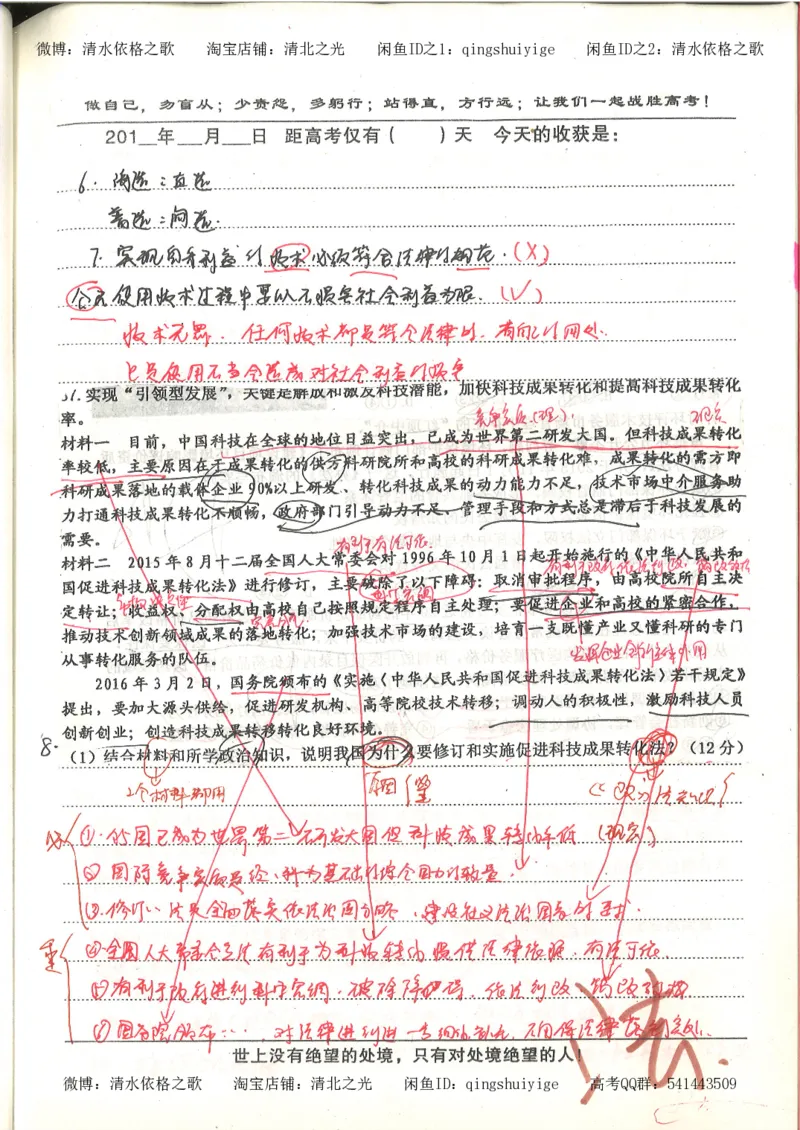 微博：清水依格之歌 淘宝店铺：清北之光 闲鱼ID之1：qingshuiyige 闲鱼ID之2：清水依格之歌
做自己，勿盲从；少责怨，多躬行；站得直，方行远；让我们一起战胜高考！
201__年___月___日 距高考仅有（ ）天 今天的收获是：
6. 海选：直选
普选：间选.
7. 实现自身利益的技术必须符合法律的规范.(X)
公民使用技术过程中要以不损害社会利益为限.(√)
技术无罪. 任何技术都是符合法律的. 有自己的用处.
只是使用不当会造成对社会利益的损害
31.实现“引领型发展”，关键是解放和激发科技潜能，加快科技成果转化和提高科技成果转化
率。
竞争定位(理) 现实
材料一 目前，中国科技在全球的地位日益突出，已成为世界第二研发大国。但科技成果转化
率较低，主要原因在于成果转化的供方科研院所和高校的科研成果转化难，成果转化的需方即
科研成果落地的载体企业90%以上研发、转化科技成果的动力能力不足，技术市场中介服务助
力打通科技成果转化不顺畅，政府部门引导动力不足、管理手段和方式总是滞后于科技发展的
需要。
有利于有法可依
材料二 2015年8月十二届全国人大常委会对1996年10月1日起开始施行的《中华人民共和
国促进科技成果转化法》进行修订，主要破除了以下障碍：取消审批程序，由高校院所自主决
定转让；收益权、分配权由高校自己按照规定程序自主处理；要促进企业和高校的紧密合作，
推动技术创新领域成果的落地转化；加强技术市场的建设，培育一支既懂产业又懂科研的专门
从事转化服务的队伍。
2016年3月2日，国务院颁布的《实施〈中华人民共和国促进科技成果转化法〉若干规定》
提出，要加大源头供给，促进研发机构、高等院校技术转移；调动人的积极性，激励科技人员
创新创业；创造科技成果转移转化良好环境。
8.
（1）结合材料和所学政治知识，说明我国为什么要修订和实施促进科技成果转化法？（12分）
2个材料都用 原因
① 我国已成为世界第二研发大国但科技成果转化率低 (现实)
② 国际竞争实质是经、科为基础的综合国力的较量.
③ 修订…法是全面落实依法治国方略、建设社义法治国家的要求.
④ 全国人大常委会立法有利于为科技转化提供法律依据. 有法可依.
⑤ 有利于政府进行科学宏调. 破除障碍. 依法行政
⑥ 国务院颁布…. 对法律进行进一步细化
世上没有绝望的处境，只有对处境绝望的人！
微博：清水依格之歌 淘宝店铺：清北之光 闲鱼ID：qingshuiyige 高考QQ群：541443509